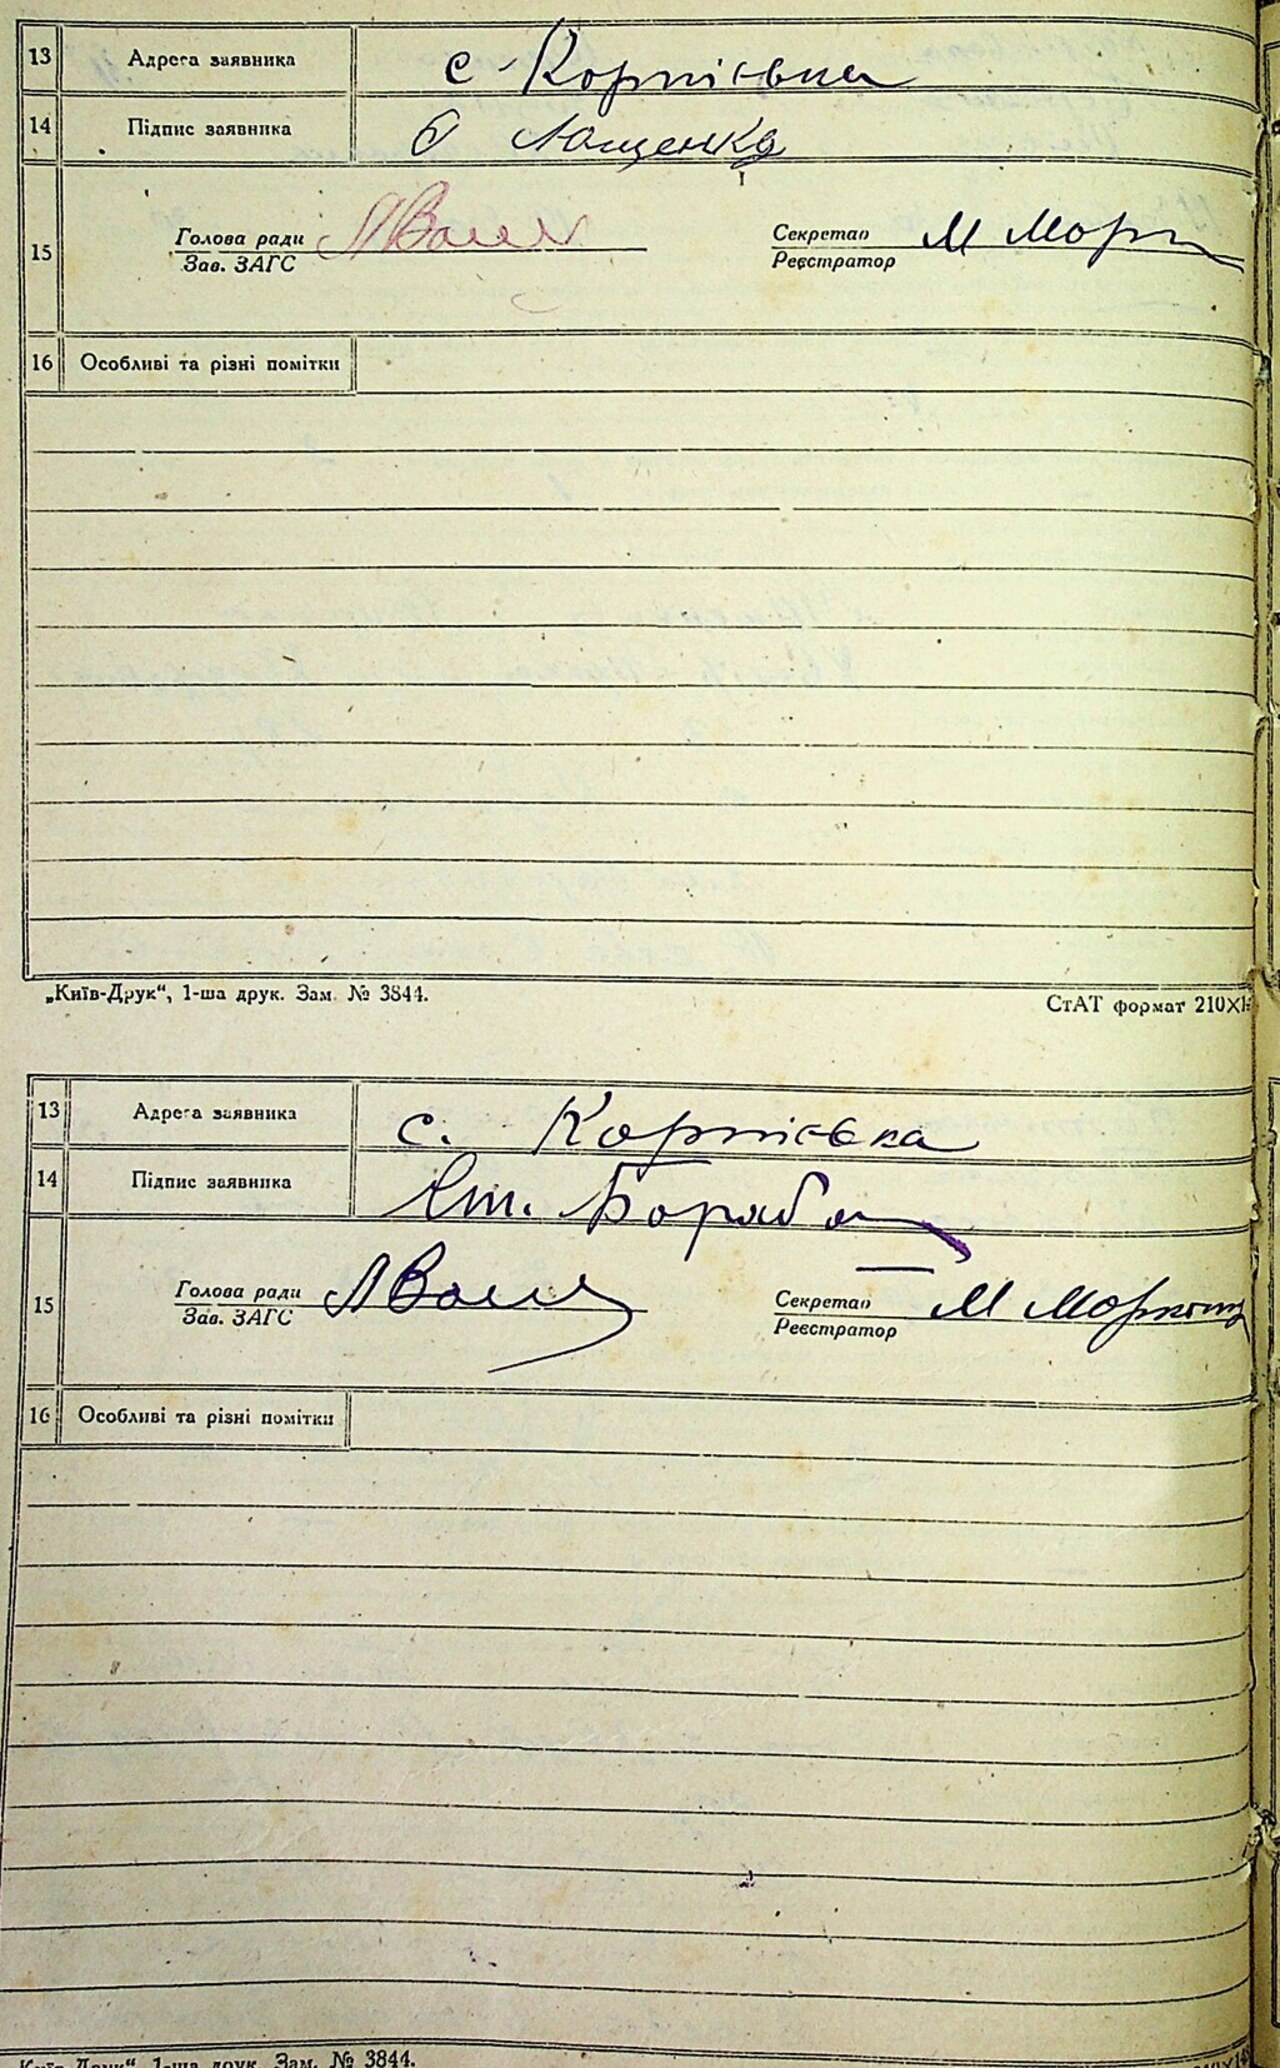 13 Адреса заявника с. Корніївка
14 Підпис заявника Лащенко
15 Голова ради Секретар М
Зав. ЗАГС Реєстратор
16 Особливі та різні помітки
„Київ-Друк“, 1-ша друк. Зам. № 3844. СтАТ формат 210X1
13 Адреса заявника с. Корніївка
14 Підпис заявника
15 Голова ради Секретар М
Зав. ЗАГС Реєстратор
16 Особливі та різні помітки
Київ-Друк“, 1-ша друк. Зам. № 3844.